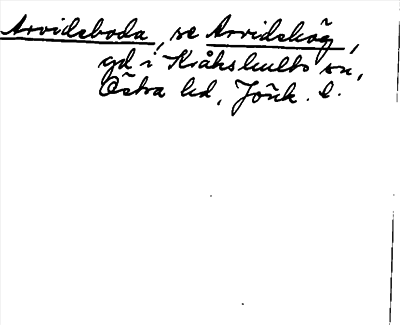 Arvidsboda, se Arvidshög,
gd i Kråkshults sn,
Östra hd, Jönk. l.